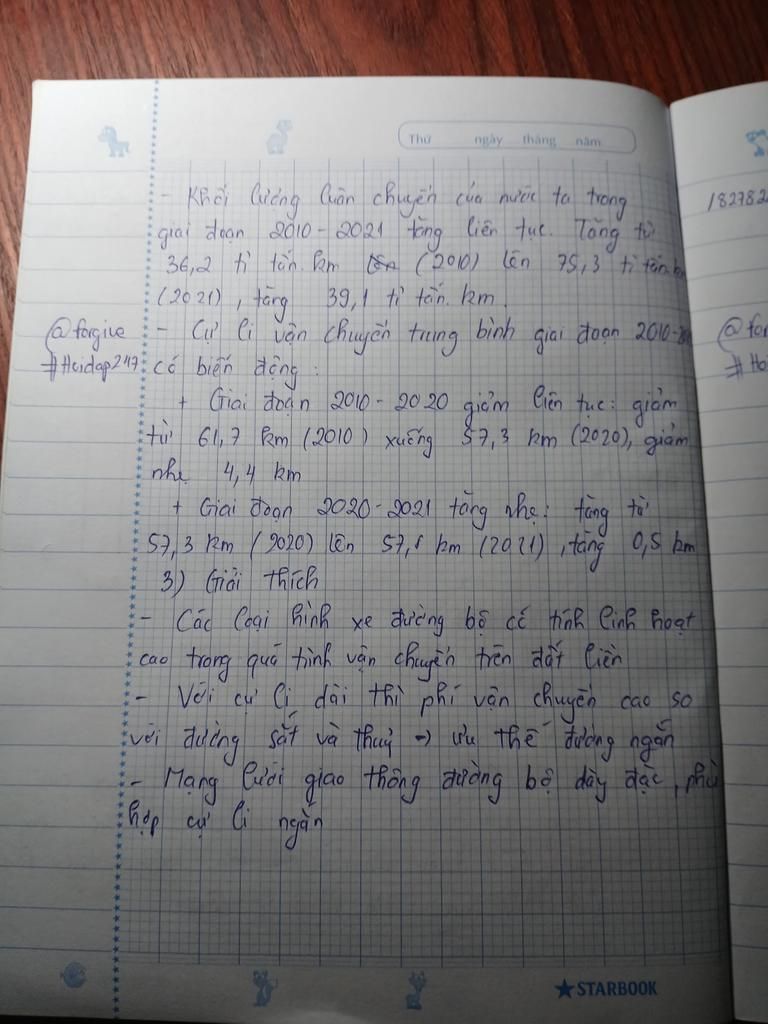 Thứ ngày tháng năm
- Khối lượng luân chuyển của nước ta trong
giai đoạn 2010-2021 tăng liên tục. Tăng từ
36,2 tỉ tấn.km (2010) lên 75,3 tỉ tấn.km
(2021), tăng 39,1 tỉ tấn.km.
- Cự li vận chuyển trung bình giai đoạn 2010-
có biến động:
+ Giai đoạn 2010-2020 giảm liên tục: giảm
từ 61,7 km (2010) xuống 57,3 km (2020), giảm
nhẹ 4,4 km
+ Giai đoạn 2020-2021 tăng nhẹ: tăng từ
57,3 km (2020) lên km (2021), tăng 0,5 km
3) Giải thích
- Các loại hình xe đường bộ có tính linh hoạt
cao trong quá tình vận chuyển trên đất liền
- Với cự li dài thì phí vận chuyển cao so
với đường sắt và thuỷ → ưu thế đường ngắn
- Mạng lưới giao thông đường bộ dày đặc, phù
hợp cự li ngắn
@forgive
#Hoidap247
STARBOOK
182782
@for
#Ho